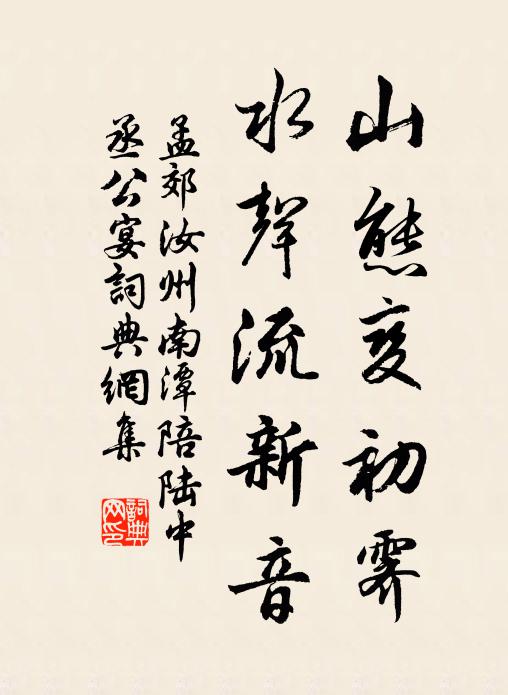 山態变初霽
水聲流新音
孟郊汝州南潭陪陆中
丞公宴詞典網集
詞典
网印